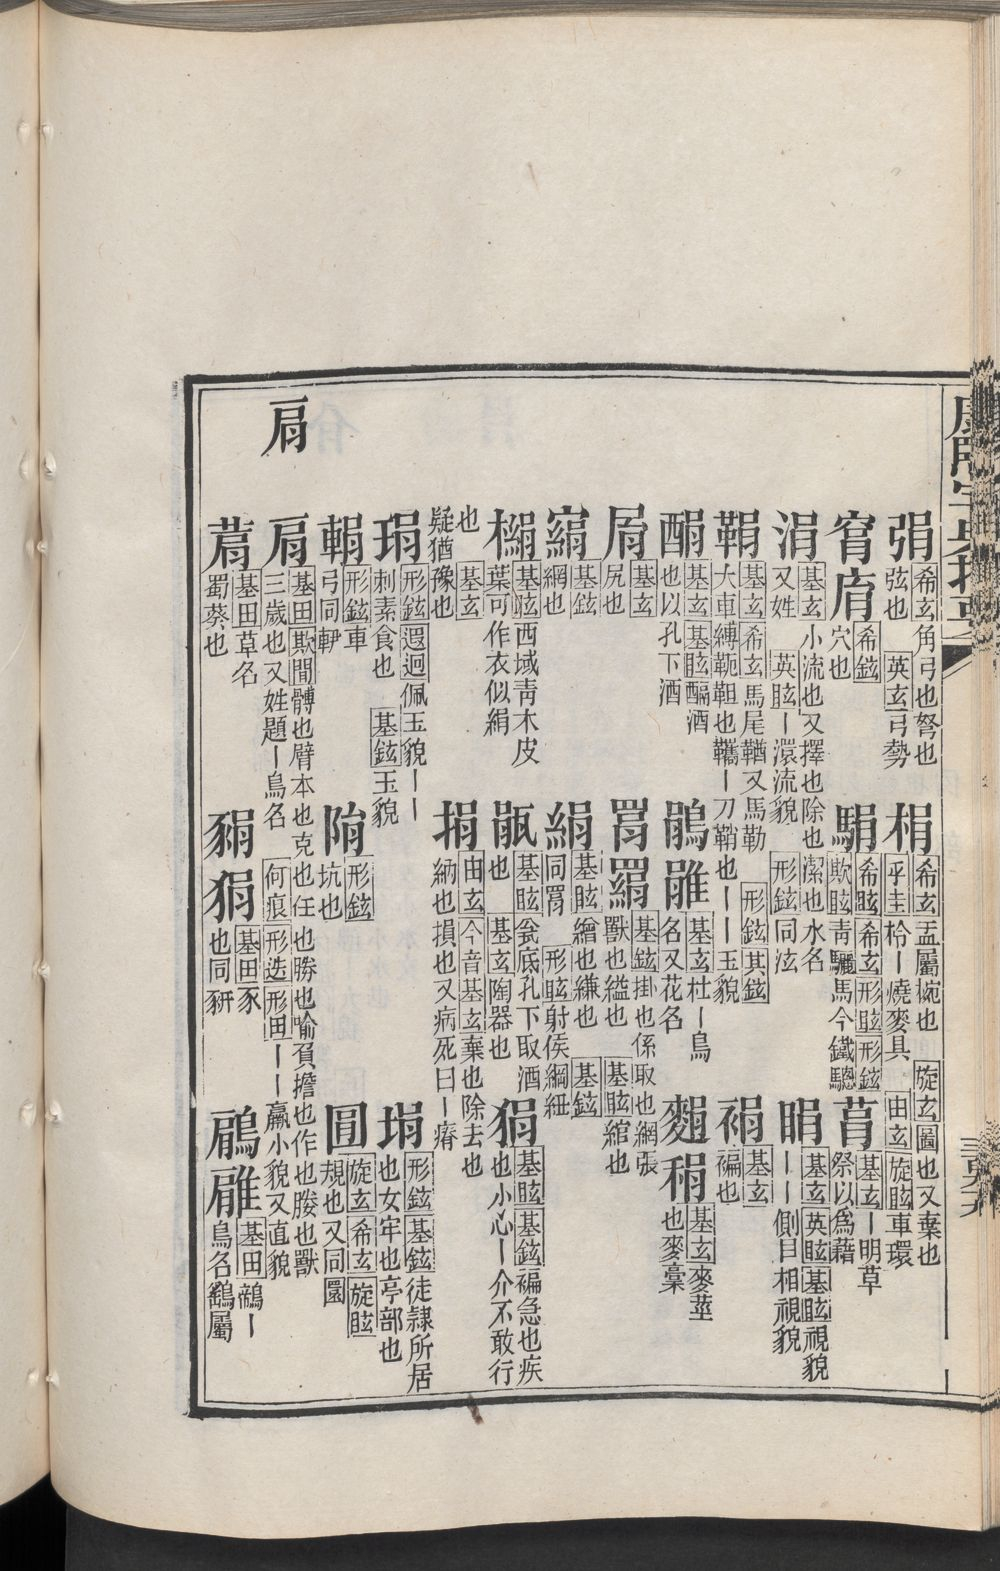 弲 希玄角弓也弩也
弦也 英玄弓勢
梋 希玄盂屬椀也 旋玄圖也又棄也
乎圭柃丨燒麥具 由玄旋眩車環
希鉉
穴也
駽 希眩希玄形眩形鉉
欺眩靑驪馬今鐵驄
基玄丨明草
祭以爲藉
涓 基玄小流也又擇也除也潔也水名
又姓 英眩丨澴流貌 形鉉同泫
睊 基玄英眩基眩視貌
丨丨側目相視貌
鞙 基玄希玄馬尾鞧又馬勒 形鉉其鉉
大車縛軛靼也鞴丨刀鞘也丨丨玉貌
裐 基玄
褊也
酳 基玄基眩醨酒
也以孔下酒
鵑 基玄杜丨鳥
名又花名
麲稍 基玄麥莖
也麥稾
基玄
尻也
罥羂 基鉉掛也係取也網張
獸也縊也 基眩綰也
基鉉
網也
絹 基眩繒也縑也 基鉉
同罥 形眩射侯綱紐
基眩西域靑木皮
葉可作衣似絹
基眩瓮底孔下取酒
也 基玄陶器也
狷 基眩基鉉褊急也疾
也小心丨介不敢行
也 基玄
疑猶豫也
捐 由玄今音基玄棄也除去也
納也損也又病死曰丨瘠
琄 形鉉遐迥佩玉貌丨丨
刺素食也 基鉉玉貌
埍 形鉉基鉉徒隷所居
也女牢也亭部也
形鉉車
弓同䡏
形鉉
坑也
圓 旋玄希玄旋眩
規也又同圜
肩
肩 基田欺閒髆也臂本也克也任也勝也喻負擔也作也媵也獸
三歲也又姓題丨鳥名 何痕形迭形田丨丨羸小貌又直貌
基田草名
蜀葵也
豣 基田豕
也同豜
鵳雃 基田鷏丨
鳥名鷂屬